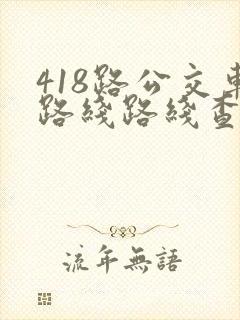 418路公交車
路綫路綫查
流年無語